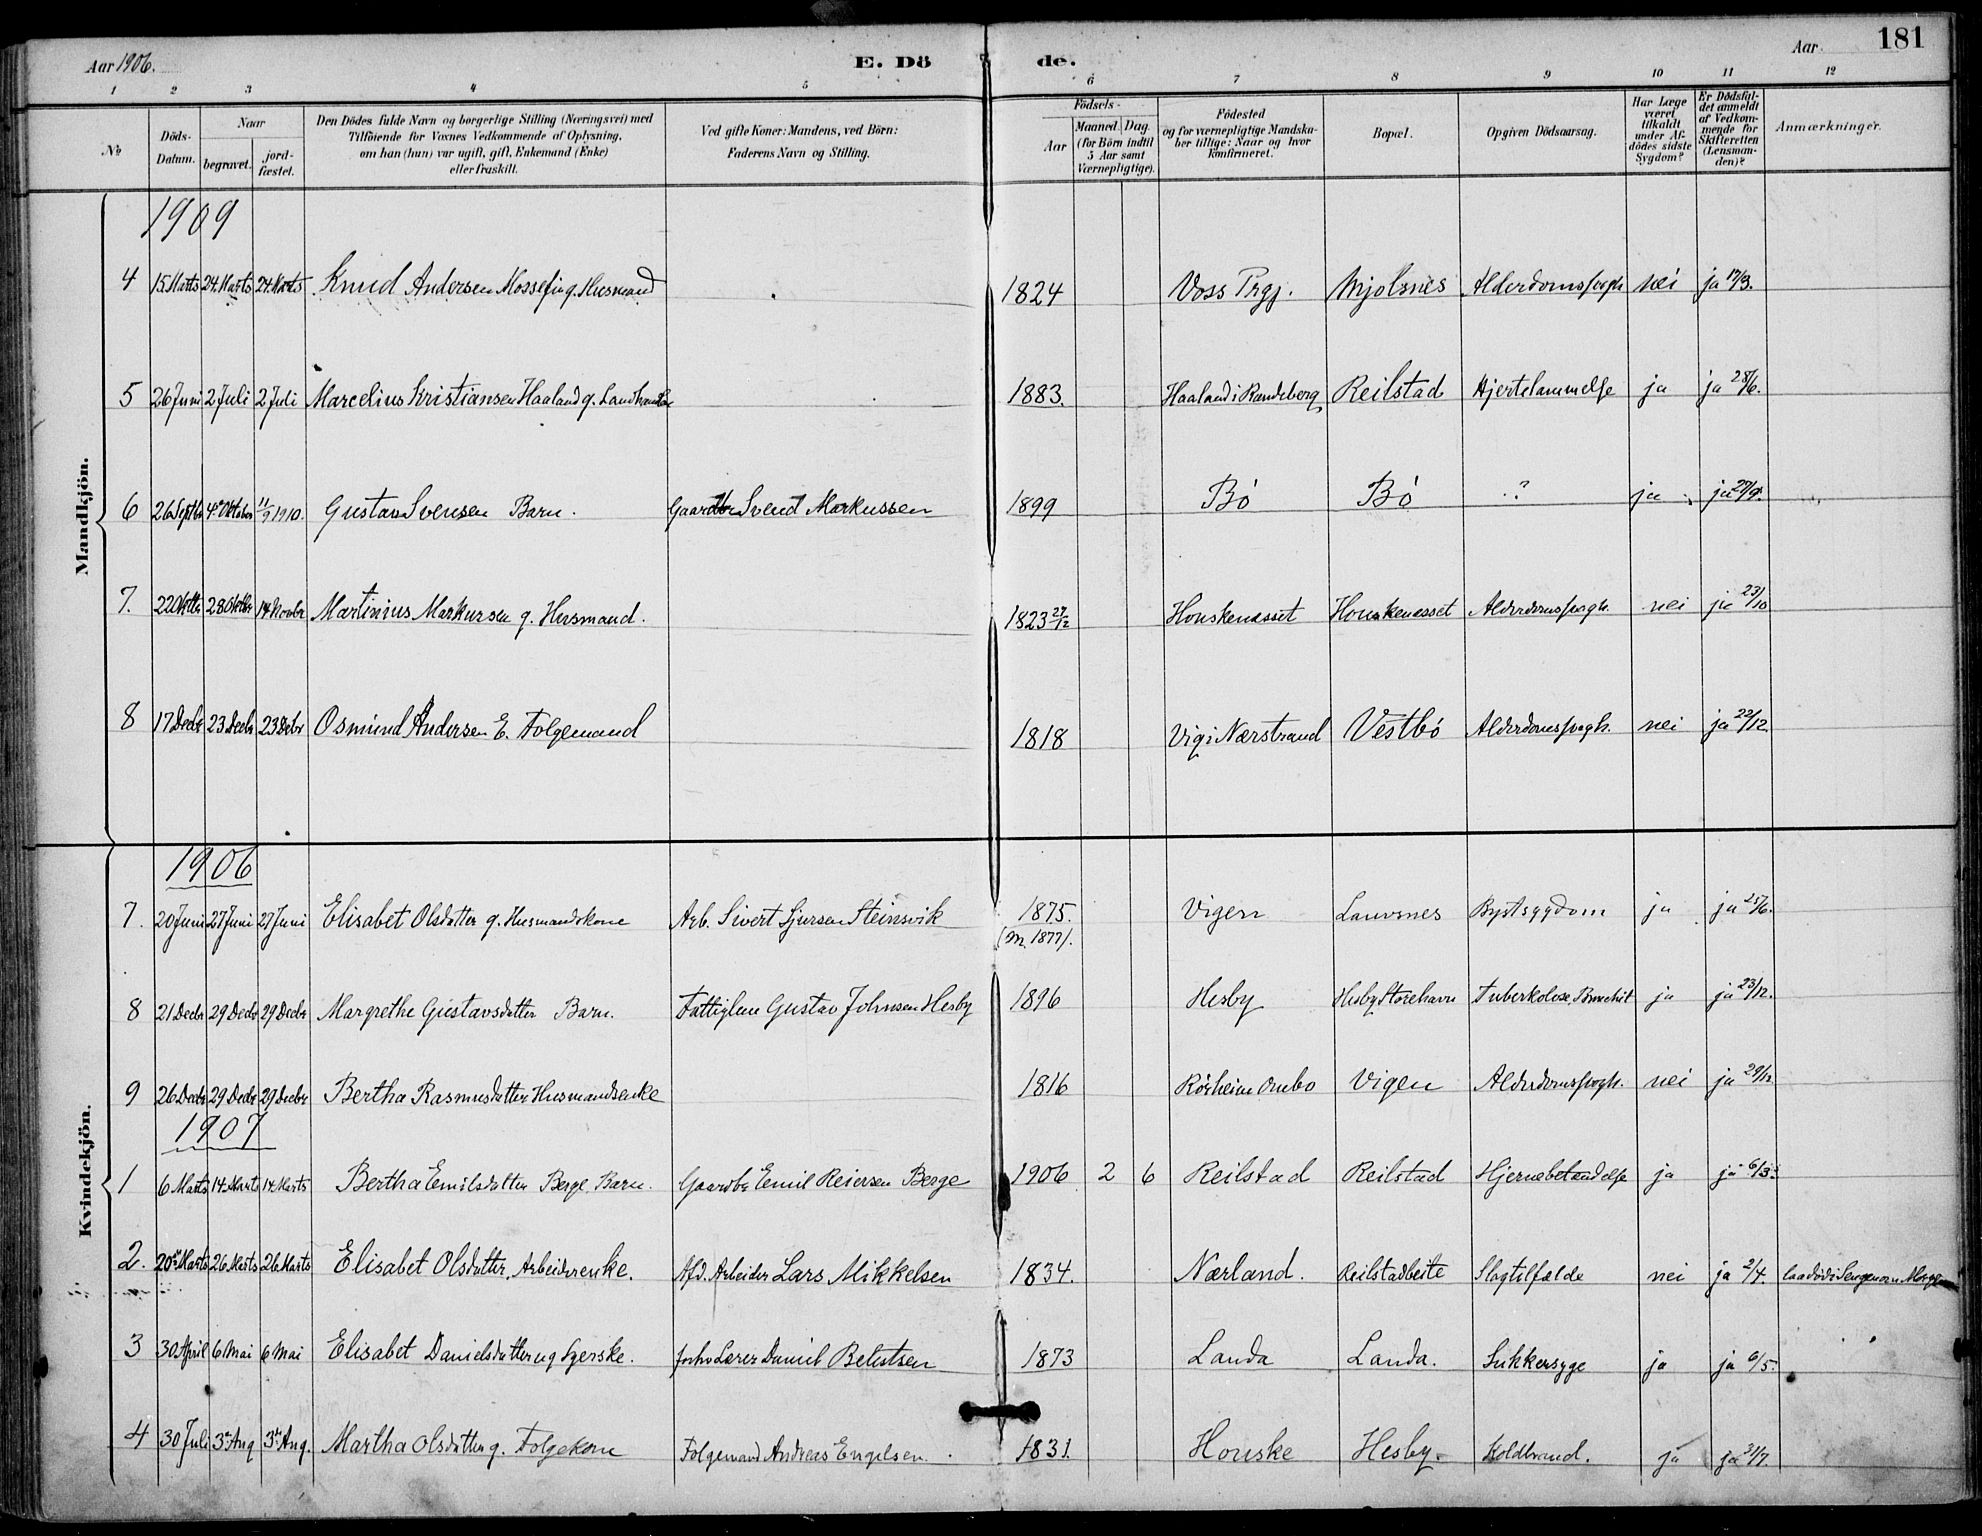 Aar 1906. E. Dö de. Aar 181
1 2 3 4 5 6 7 8 9 10 11 12
No
Döds-Datum.
Naar
begravet.
jord-fæstet.
Den Dödes fulde Navn og borgerlige Stilling (Næringsvei) med
Tilföiende for Voxnes Vedkommende af Oplysning,
om han (hun) var ugift, gift, Enkemand (Enke)
eller fraskilt.
Ved gifte Koner: Mandens, ved Börn:
Faderens Navn og Stilling.
Födsels-
Aar
Maaned. Dag.
(for Börn indtil
5 Aar samt
Værnepligtige).
Födested
og for værnepligtige Mandska-
ber tillige: Naar og hvor
konfirmeret.
Bopæl.
Opgiven Dödsaarsag.
Har Læge
været
tilkaldt
under Af-
dödes sidste
Sygdom?
Er Dödsfal-
det anmeldt
af Vedkom-
mende for
Skifteretten
(Lensman-
den)?
Anmærkninger.
Mandkjön.
1909
4 15 Marts 24 Marts 24 Marts Knud Andersen g. Husmand 1824 Voss Prgj. Mjolsnes Alderdomssvagh nei ja 17/3.
5 26 Juni 2 Juli 2 Juli Marcelius Kristiansen Haaland g. Landhandler 1883. Haaland i Randeberg Reilstad Hjertelammelse ja ja 28/6.
6 26 Septbr 4de Oktober 11/9 1910. Gustav Svensen Barn. Gaardbr Svend Markussen 1899 Bö Bö ? ja ja 29/9.
7. 22 Oktbr 28 Oktbr 14 Novbr Martinius Markussen g. Husmand. 1823 27/12 Houskenæsset Houskenæsset Alderdomssvagh. nei ja 23/10
8 17 Decbr 23 Decbr 23 Decbr Osmund Andersen E. Folgemand 1818 Vig i Nærstrand Vestbö Alderdomssvagh. nei ja 22/12.
Kvindekjön.
1906
7. 20 Juni 27 Juni 27 Juni Elisabet Olsdatter g. Husmandskone Arb. Sivert Sjursen Steinsvik 1875. (m. 1877). Vigen Lauvsnes Brystsygdom ja ja 25/6.
8 21 Decbr 29 Decbr 29 Decbr Margrethe Gustavsdatter Barn. Fattiglem Gustav Johnsen Hesby 1896 Hesby Hesby Storehavn Tuberkolose Bronchit ja ja 23/12.
9 26 Decbr 29 Decbr 29 Decbr Bertha Rasmusdatter Husmandsenke 1816 Rörheim Ombo Vigen Alderdomssvagh. nei ja 29/12
1907
1 6 Marts 14 Marts 14 Marts Bertha Emilsdatter Berge, Barn. Gaardbr Emil Reiersen Berge 1906 2 6 Reilstad Reilstad Hjernebetændelse ja ja 6/3.
2. 20de Marts 26 Marts 26 Marts Elisabet Olsdatter, Arbeiderenke. Afd. Arbeider Lars Mikkelsen 1834. Nærland. Reilstadbeite Slagtilfælde nei ja 2/4. laa död i Sengen om Morgenen
3 30 April 6 Mai 6 Mai Elisabet Danielsdatter ug Syerske. forhv Lærer Daniel 1873 Landa Landa. Sukkersyge ja ja 6/5.
4 30 Juli 3de Aug 3de Aug. Martha Olsdatter g. Folgekone Folgemand Andreas Engelsen. 1831. Houske Hesby. Koldbrand. ja ja 31/7.